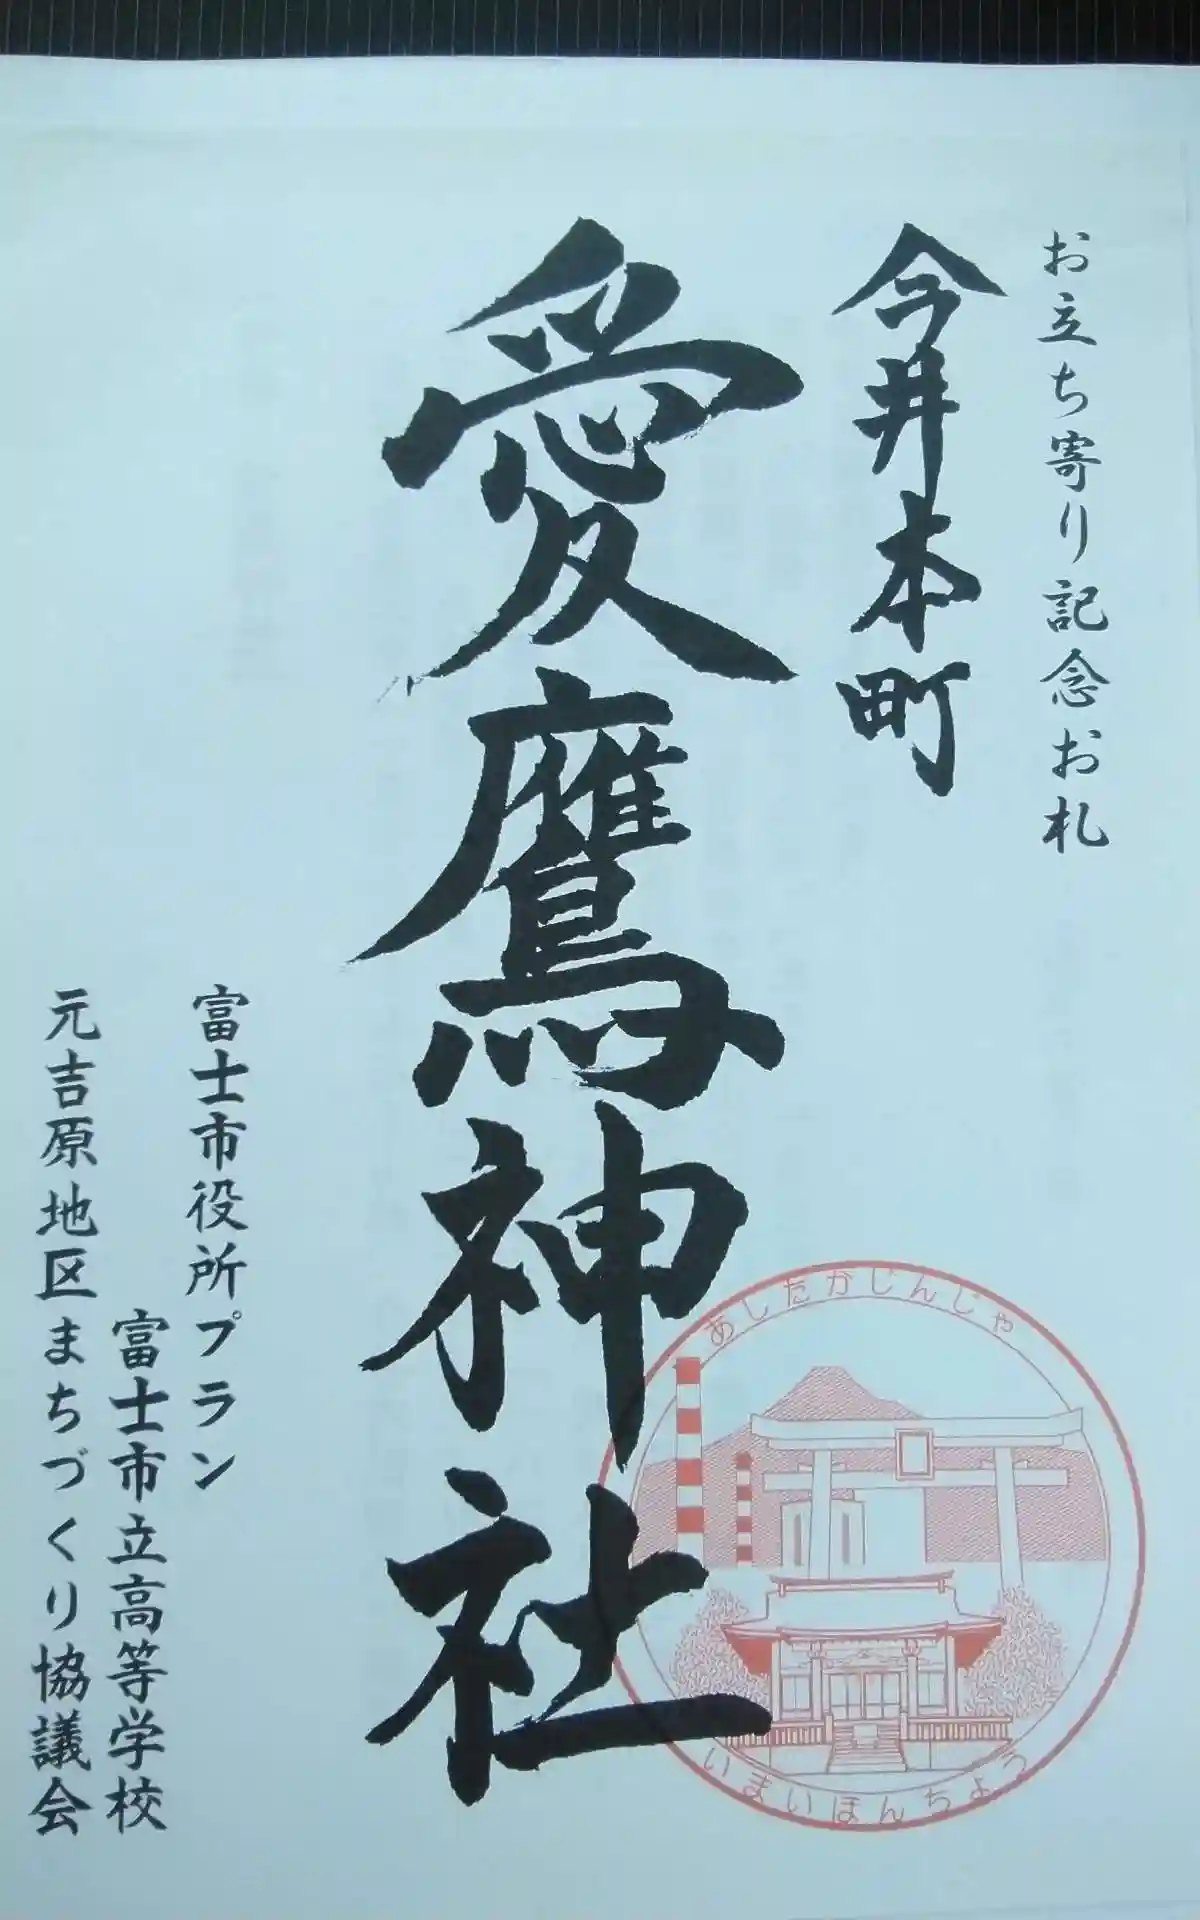 お立ち寄り記念お札
今井本町
愛鷹神社
あしたかじんじゃ
いまいほんちょう
富士市役所プラン
富士市立高等学校
元吉原地区まちづくり協議会